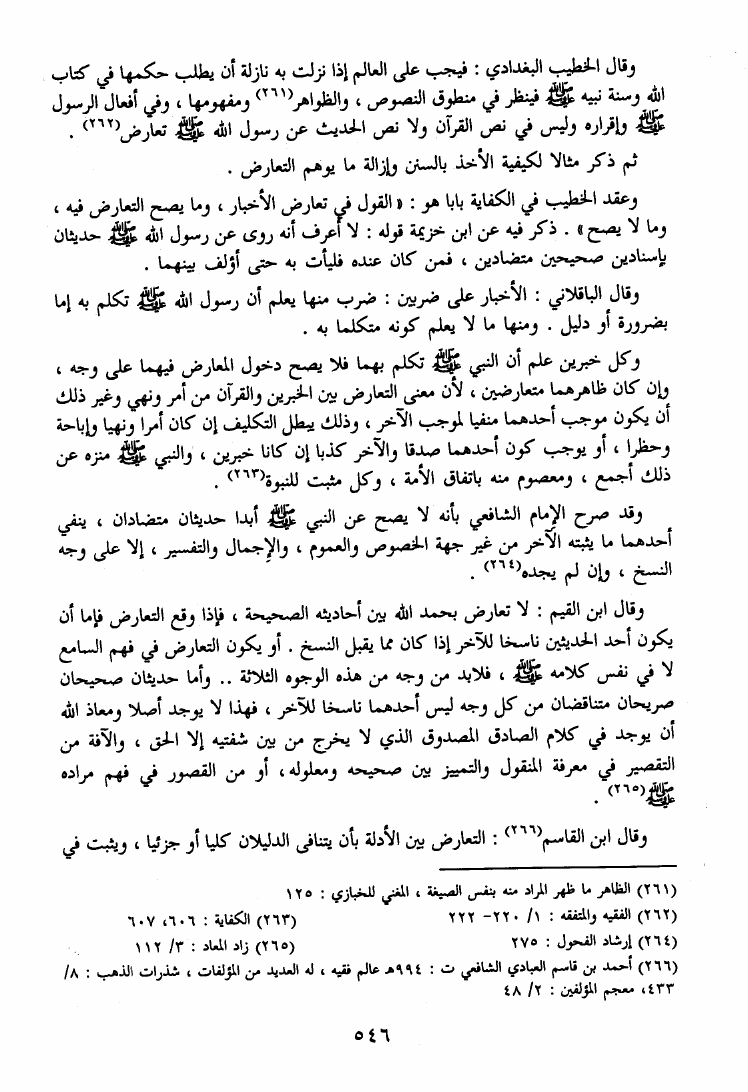 وقال الخطيب البغدادي : فيجب على العالم إذا نزلت به نازلة أن يطلب حكمها في كتاب
الله وسنة نبيه ﷺ فينظر في منطوق النصوص ، والظواهر(٢٦١) ومفهومها ، وفي أفعال الرسول
ﷺ وإقراره وليس في نص القرآن ولا نص الحديث عن رسول الله ﷺ تعارض(٢٦٢) .
ثم ذكر مثالا لكيفية الأخذ بالسنن وإزالة ما يوهم التعارض .
وعقد الخطيب في الكفاية بابا هو : «القول في تعارض الأخبار ، وما يصح التعارض فيه ،
وما لا يصح» . ذكر فيه عن ابن خزيمة قوله : لا أعرف أنه روى عن رسول الله ﷺ حديثان
بإسنادين صحيحين متضادين ، فمن كان عنده فليأت به حتى أؤلف بينهما .
وقال الباقلاني : الأخبار على ضربين : ضرب منها يعلم أن رسول الله ﷺ تكلم به إما
بضرورة أو دليل . ومنها ما لا يعلم كونه متكلما به .
وكل خبرين علم أن النبي ﷺ تكلم بهما فلا يصح دخول المعارض فيهما على وجه ،
وإن كان ظاهرهما متعارضين ، لأن معنى التعارض بين الخبرين والقرآن من أمر ونهي وغير ذلك
أن يكون موجب أحدهما منفيا لموجب الآخر ، وذلك يبطل التكليف إن كان أمرا ونهيا وإباحة
وحظرا ، أو يوجب كون أحدهما صدقا والآخر كذبا إن كانا خبرين ، والنبي ﷺ منزه عن
ذلك أجمع ، ومعصوم منه باتفاق الأمة ، وكل مثبت للنبوة(٢٦٣) .
وقد صرح الإمام الشافعي بأنه لا يصح عن النبي ﷺ أبدا حديثان متضادان ، ينفي
أحدهما ما يثبته الآخر من غير جهة الخصوص والعموم ، والإجمال والتفسير ، إلا على وجه
النسخ ، وإن لم يجده(٢٦٤) .
وقال ابن القيم : لا تعارض بحمد الله بين أحاديثه الصحيحة ، فإذا وقع التعارض فإما أن
يكون أحد الحديثين ناسخا للآخر إذا كان مما يقبل النسخ . أو يكون التعارض في فهم السامع
لا في نفس كلامه ﷺ ، فلابد من وجه من هذه الوجوه الثلاثة .. وأما حديثان صحيحان
صريحان متناقضان من كل وجه ليس أحدهما ناسخا للآخر ، فهذا لا يوجد أصلا ومعاذ الله
أن يوجد في كلام الصادق المصدوق الذي لا يخرج من بين شفتيه إلا الحق ، والآفة من
التقصير في معرفة المنقول والتمييز بين صحيحه ومعلوله، أو من القصور في فهم مراده
ﷺ(٢٦٥) .
وقال ابن القاسم(٢٦٦) : التعارض بين الأدلة بأن يتنافى الدليلان كليا أو جزئيا ، ويثبت في
(٢٦١) الظاهر ما ظهر المراد منه بنفس الصيغة ، المغني للخبازي : ١٢٥
(٢٦٢) الفقيه والمتفقه : ١/ ٢٢٠- ٢٢٢ (٢٦٣) الكفاية : ٦٠٦، ٦٠٧
(٢٦٤) إرشاد الفحول : ٢٧٥ (٢٦٥) زاد المعاد : ٣/ ١١٢
(٢٦٦) أحمد بن قاسم العبادي الشافعي ت : ٩٩٤هـ عالم فقيه ، له العديد من المؤلفات ، شذرات الذهب : ٨/
٤٣٣، معجم المؤلفين : ٢/ ٤٨
٥٤٦